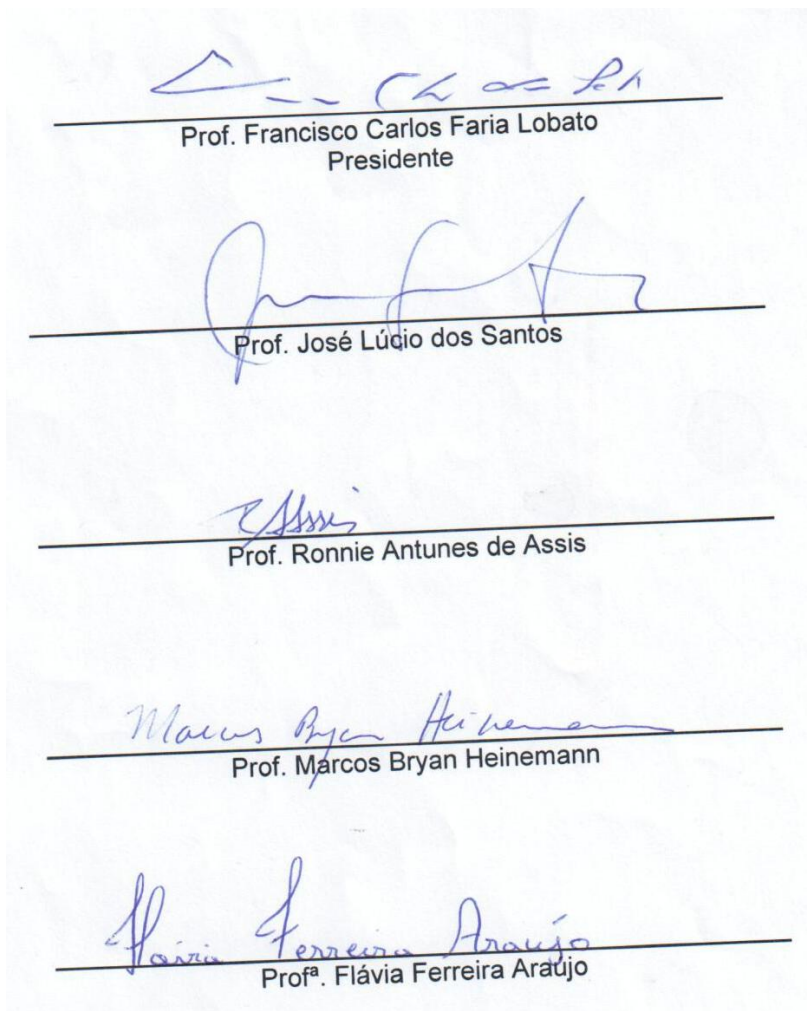 Prof. Francisco Carlos Faria Lobato
Presidente
Prof. José Lúcio dos Santos
RAssis
Prof. Ronnie Antunes de Assis
Marcos Bryan Heinemann
Prof. Marcos Bryan Heinemann
Flávia Ferreira Araújo
Profª. Flávia Ferreira Araújo